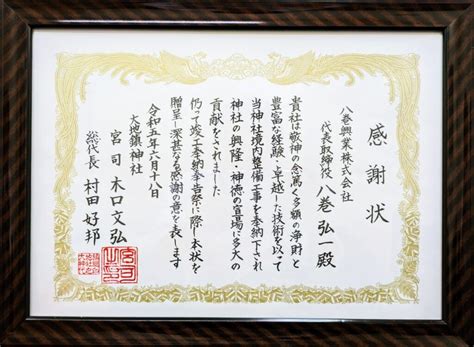 感謝状
八巻興業株式会社
代表取締役 八巻弘一殿
貴社は敬神の念篤く多額の浄財と
豊富な経験・卓越した技術を以って
当神社境内整備工事を奉納下され
神社の興隆・神徳の宣揚に多大の
貢献をされました
仍って竣工奉納奉告祭に際し本状を
贈呈し深甚なる感謝の意を表します
令和五年六月十八日
大地鎮神社
宮司 木口文弘
総代長 村田好邦